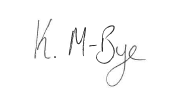 K. M-Bye